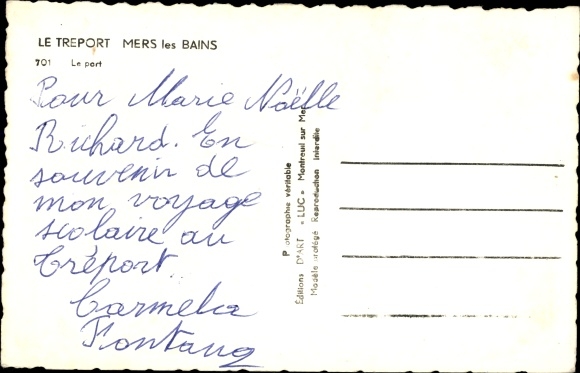 LE TREPORT MERS les BAINS
701 Le port
Pour Marie Noëlle
Richard. En
souvenir de
mon voyage
scolaire au
Tréport.
Carmela
Photographie véritable
Éditions D'ART « LUC » Montreuil sur Mer
Modèle protégé Reproduction Interdite